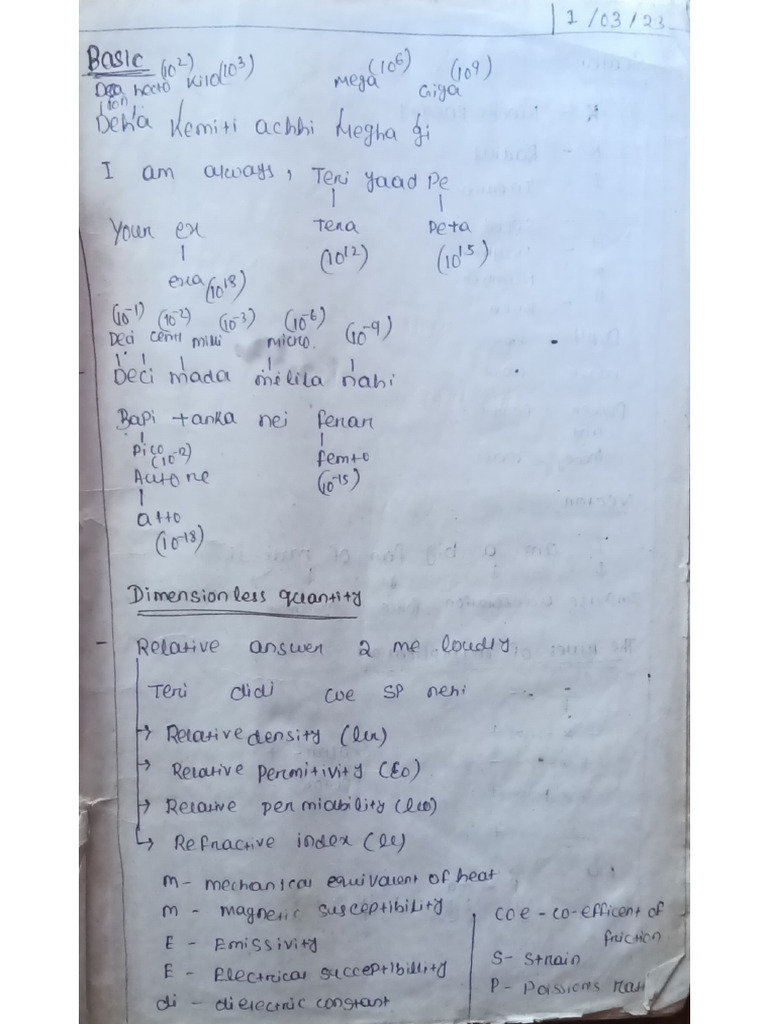 1/03/23
Basic
(10²) (10³) (10⁶) (10⁹)
Deca hecto Kilo Mega Giga
Dekha Kemiti achhi Megha gi
I am always, Teri yaad Pe
Your ex Tera Peta
(10¹²) (10¹⁵)
exa (10¹⁸)
(10⁻¹) (10⁻²) (10⁻³) (10⁻⁶) (10⁻⁹)
Deci centi milli micro.
Deci mada milila nahi
Bapi tanka nei feran
Pico femto
(10⁻¹²) (10⁻¹⁵)
Auto ne
atto
(10⁻¹⁸)
Dimensionless quantity
- Relative answer 2 me loudly
Teri didi coe SP nehi
→ Relative density
→ Relative permitivity (ε0)
→ Relative permiability
→ Refractive index
m - mechanical equivalent of heat
m - magnetic susceptibility
E - Emissivity
E - Electrical succeptibillity
di - dielectric constant
coe - co-efficent of
friction
S - Strain
P - Poissions